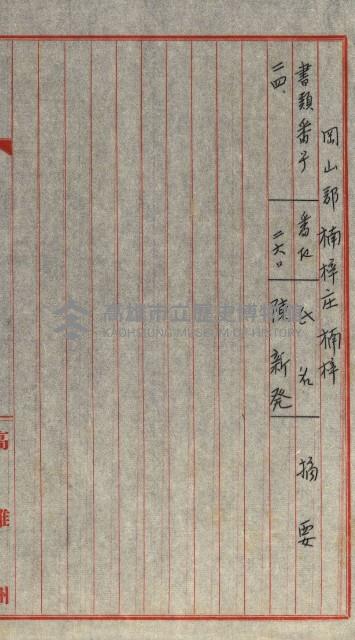 岡山郡楠梓庄楠梓
書類番号 番地 氏名 摘要
二四、 二六〇 陳新発
高雄州
高雄市立歷史博物館
KAOHSIUNG MUSEUM OF HISTORY